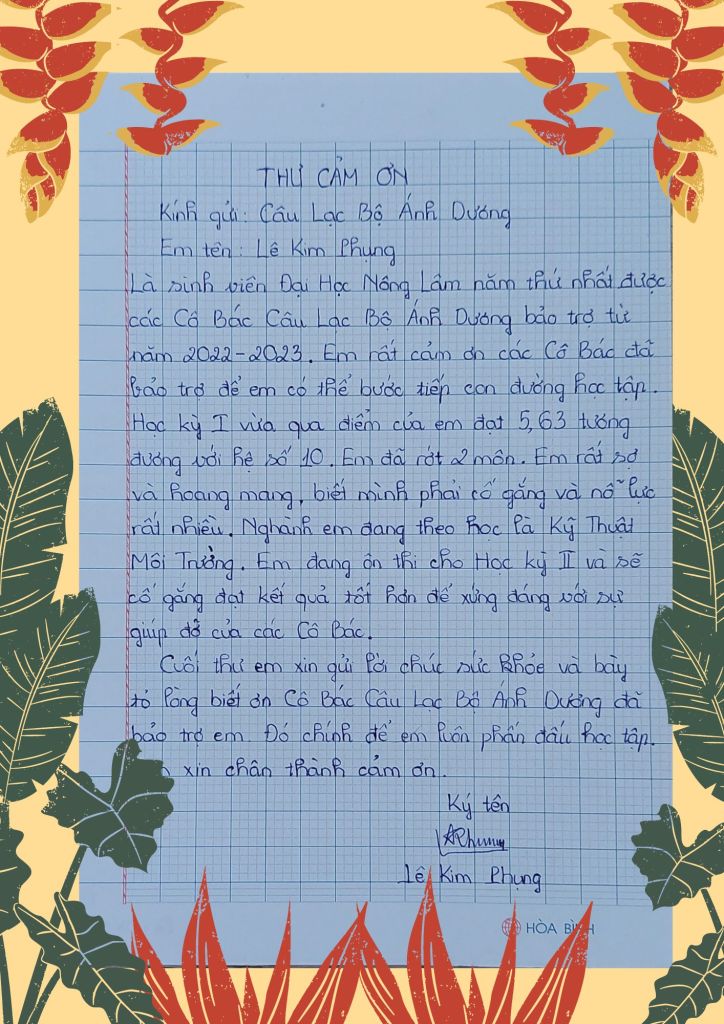 THƯ CẢM ƠN
Kính gửi: Câu Lạc Bộ Ánh Dương
Em tên: Lê Kim Phụng
Là sinh viên Đại Học Nông Lâm năm thứ nhất được
các Cô Bác Câu Lạc Bộ Ánh Dương bảo trợ từ
năm 2022-2023. Em rất cảm ơn các Cô Bác đã
bảo trợ để em có thể bước tiếp con đường học tập.
Học kỳ I vừa qua điểm của em đạt 5,63 tương
đương với hệ số 10. Em đã rớt 2 môn. Em rất sợ
và hoang mang, biết mình phải cố gắng và nỗ lực
rất nhiều. Nghành em đang theo học là Kỹ Thuật
Môi Trường. Em đang ôn thi cho Học kỳ II và sẽ
cố gắng đạt kết quả tốt hơn để xứng đáng với sự
giúp đỡ của các Cô Bác.
Cuối thư em xin gửi lời chúc sức khỏe và bày
tỏ lòng biết ơn Cô Bác Câu Lạc Bộ Ánh Dương đã
bảo trợ em. Đó chính để em luôn phấn đấu học tập.
xin chân thành cảm ơn.
Ký tên
Phụng
Lê Kim Phụng
HÒA BÌNH